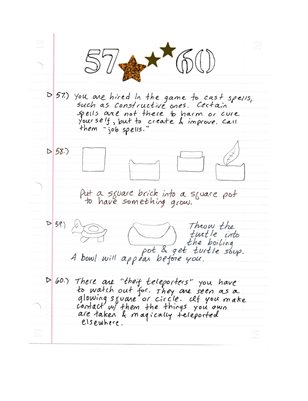 57 60
57.) You are hired in the game to cast spells,
such as constructive ones. Certain
spells are not there to harm or cure
yourself, but to create & improve. Call
them "job spells."
58.)
Put a square brick into a square pot
to have something grow.
59.)
Throw the
turtle into
the boiling
pot & get turtle soup.
A bowl will appear before you.
60.) There are "theif teleporters" you have
to watch out for. They are seen as a
glowing square or circle. If you make
contact w/ them the things you own
are taken & magically teleported
elsewhere.